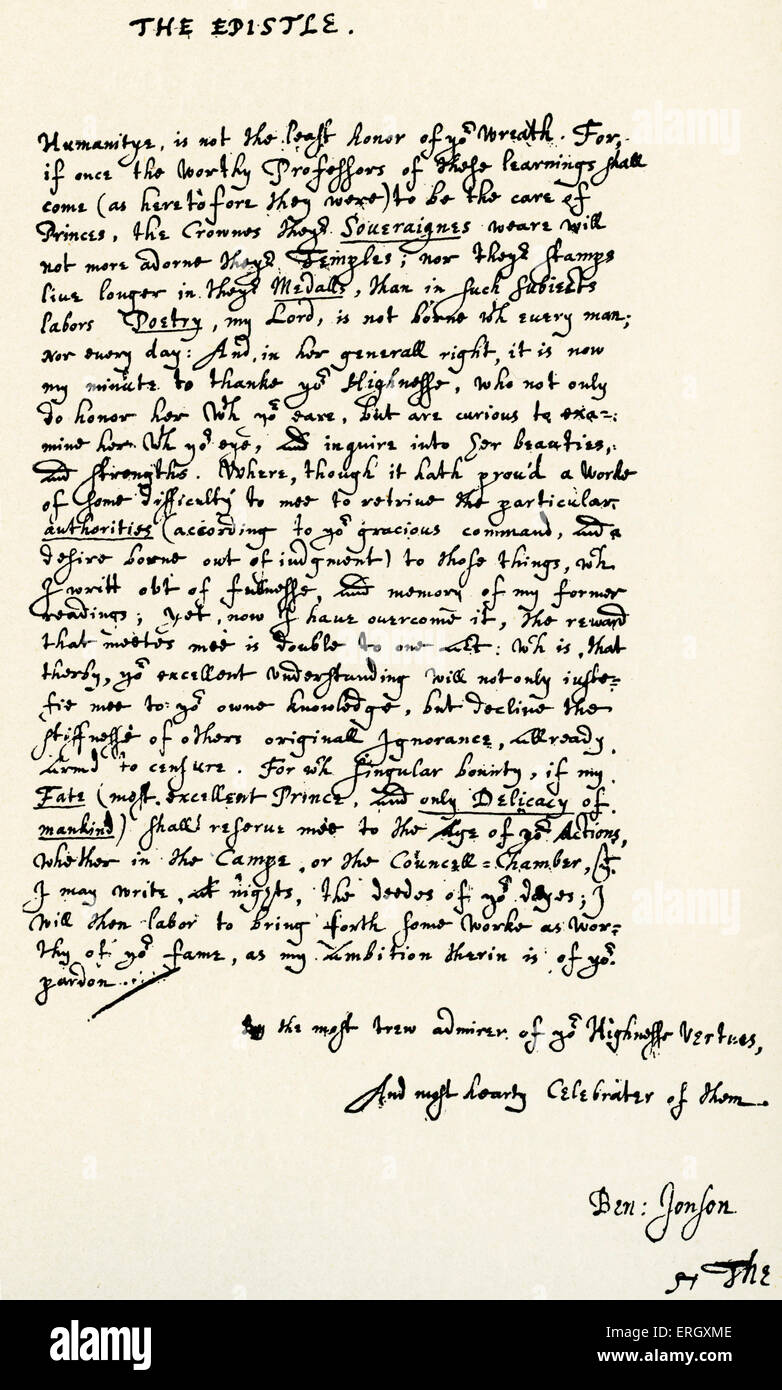 THE EPISTLE.
Humanitye, is not the least honor of yoᵘʳ Wreath. For,
if once the worthy Professors of these learnings shall
come (as heretofore they were) to be the care of
Princes, the Crownes theyʳ Soueraignes weare will
not more adorne theyʳ Temples; nor theyʳ stamps
liue longer in theyʳ Medalls, than in such subiects
labors. Poetry, my Lord, is not borne wᵗʰ euery man;
Nor euery day: And, in her generall right, it is now
my minute to thanke yoʳ Highnesse, who not only
do honor her wᵗʰ yoʳ eare, but are curious to exa=
mine her wᵗʰ yoʳ eye, and inquire into her beauties,
and strengths. Where, though it hath prou'd a worke
of some difficulty to mee to retriue the particular
authorities (according to yoʳ gracious command, and a
desire borne out of iudgment) to those things, wᶜʰ
I writt out of fullnesse, and memory of my former
readings; Yet, now I haue ouercome it, the reward
that meetes mee is double to one act: wᶜʰ is, that
therby, yoʳ excellent vnderstanding will not only iuste=
fie mee to yoʳ owne knowledge, but decline the
stiffnesse of others originall Ignorance, allready
armd to censure. For wᶜʰ singular bounty, if my
Fate (most excellent Prince, and only Delicacy of
mankind) shall reserue mee to the Age of yoʳ Actions,
whether in the Campe, or the Councell=Chamber, yᵗ
I may write, at nights, the deedes of yoʳ dayes; I
will then labor to bring forth some worke as wor=
thy of yoʳ fame, as my ambition therin is of yoʳ
pardon....
By the most trew admirer of yoʳ Highnesse Vertues,
And most hearty Celebrater of them.
Ben: Jonson
The
alamy
alamy
alamy
alamy
ERGXME
www.alamy.com